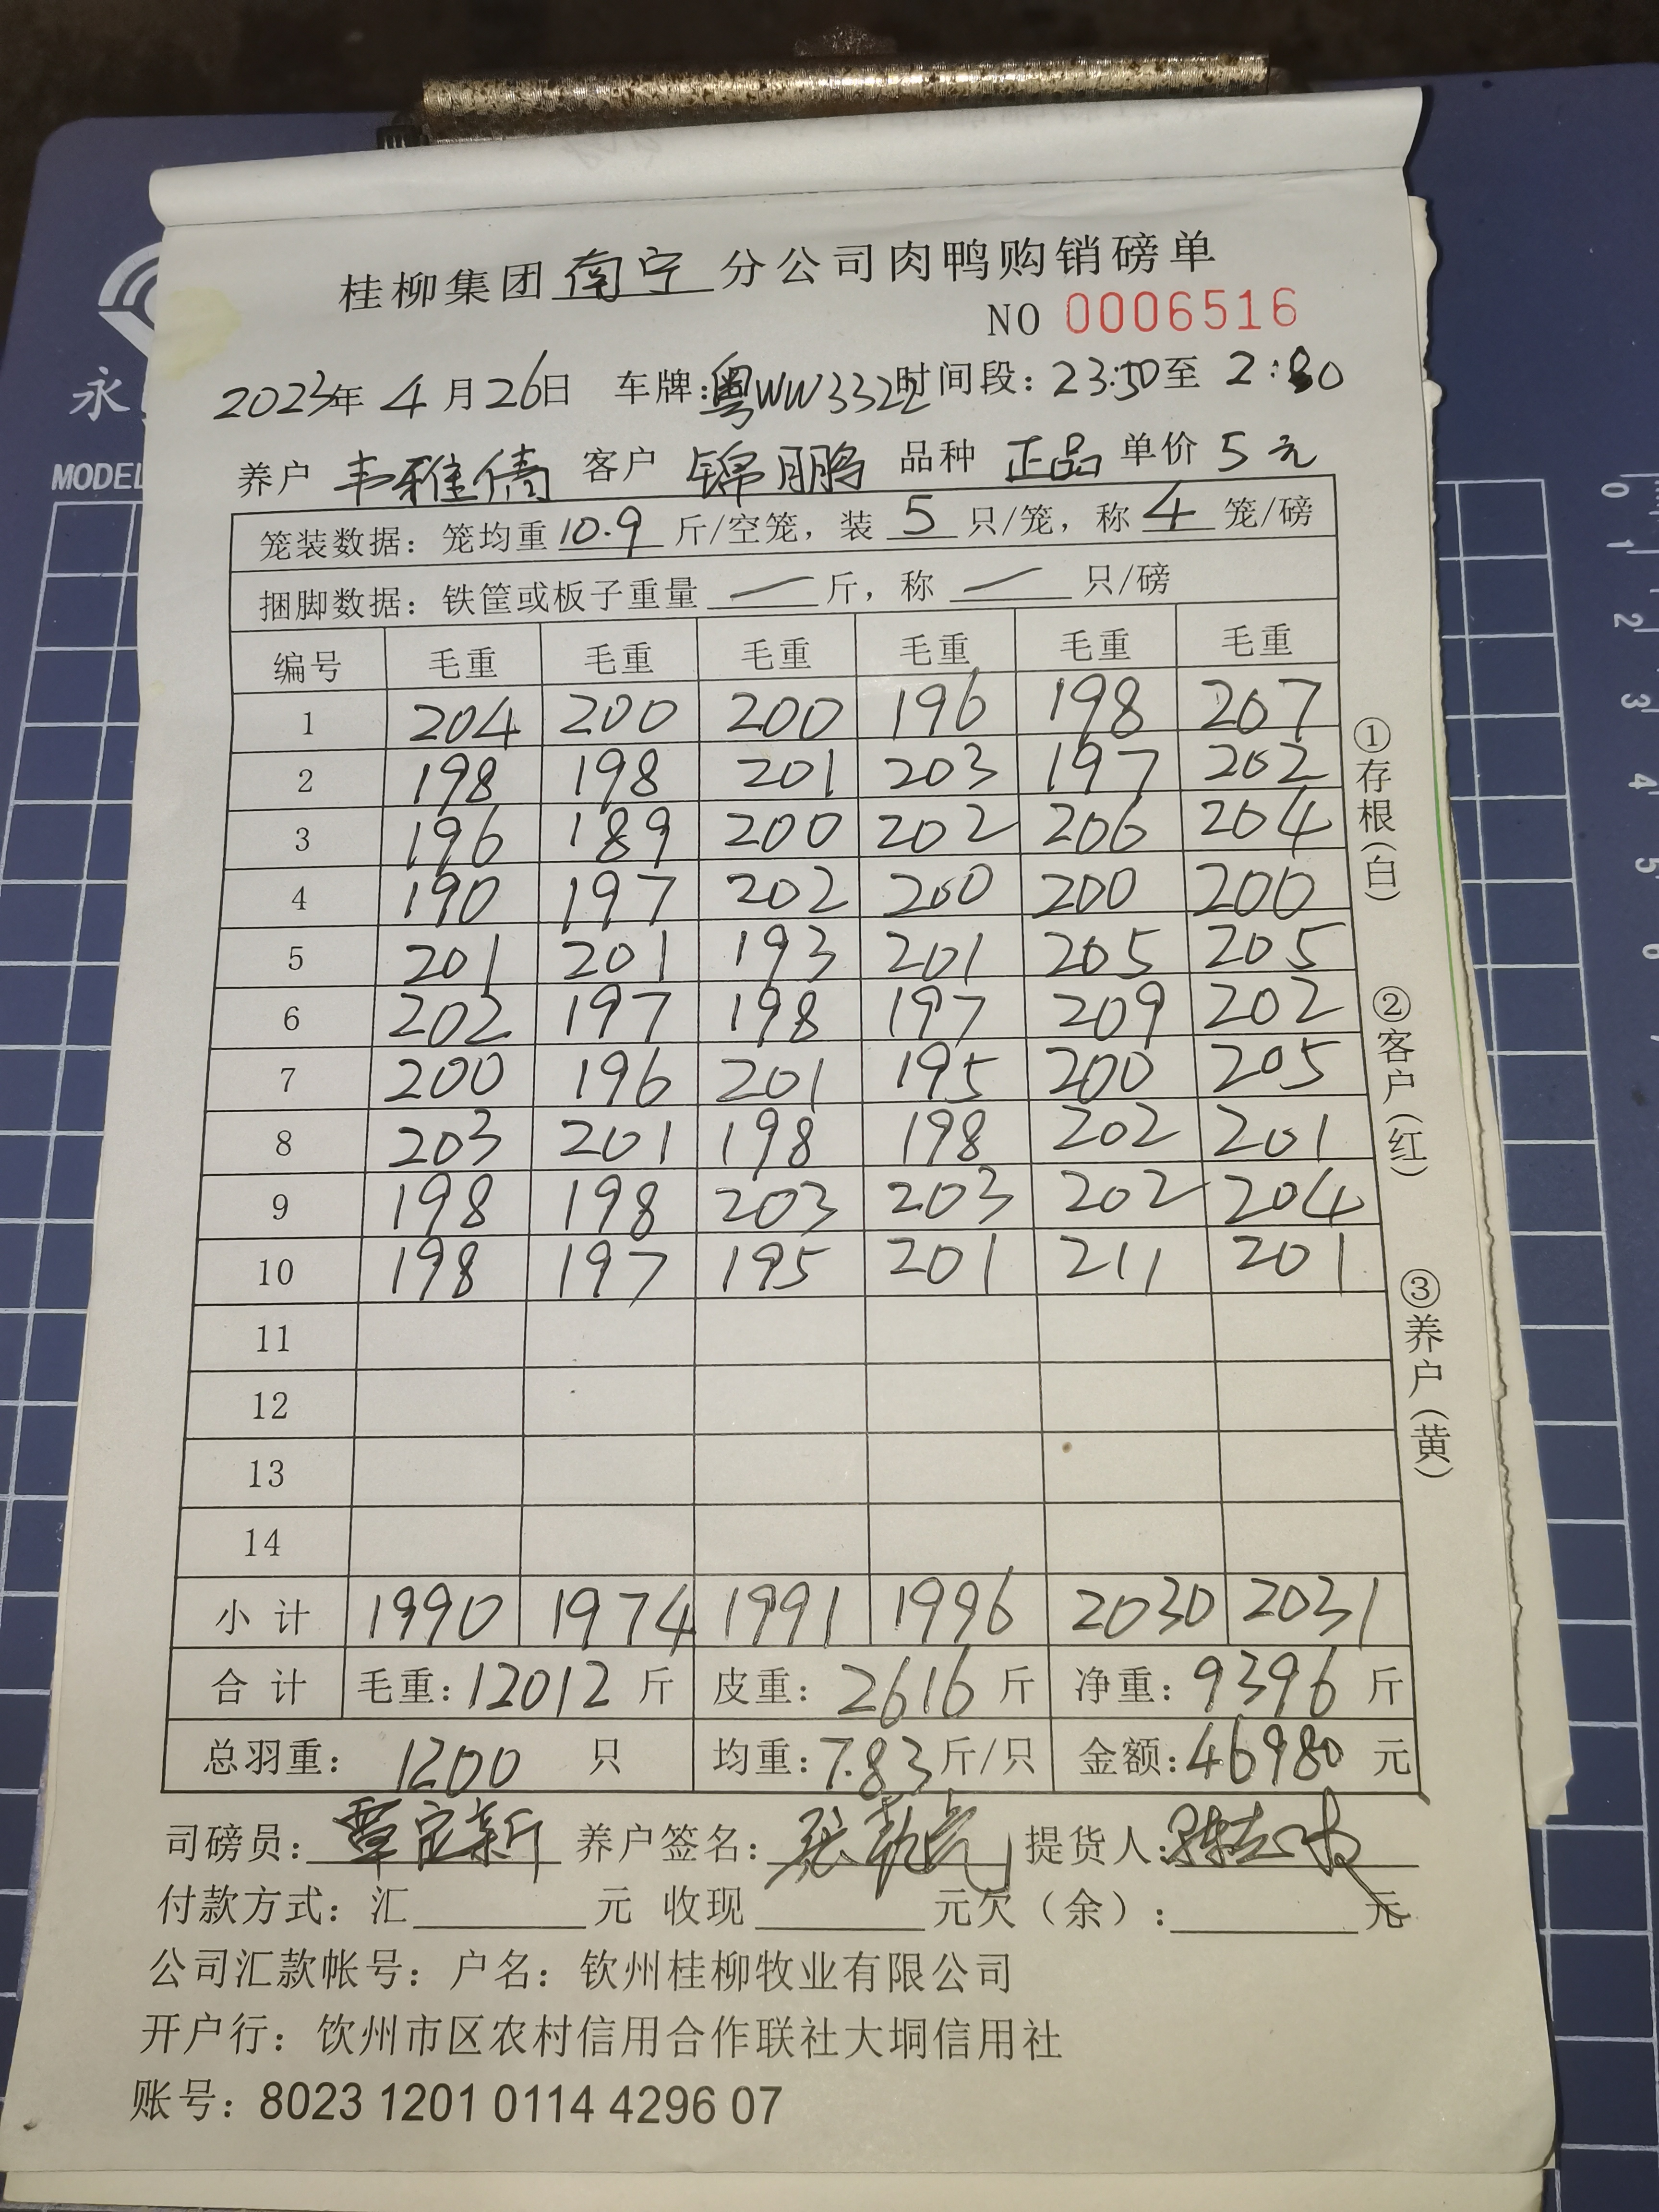 永
MODEL
桂柳集团 南宁 分公司肉鸭购销磅单
NO 0006516
2023年 4月26日 车牌:粤WW3322 时间段: 23:50至 2:
养户 韦雅倩 客户 锦鹏 品种 正品 单价 5元
笼装数据: 笼均重 10.9 斤/空笼, 装 5 只/笼, 称 4 笼/磅
捆脚数据: 铁筐或板子重量 — 斤, 称 — 只/磅
编号 毛重 毛重 毛重 毛重 毛重 毛重
1 204 200 200 196 198 207
2 198 198 201 203 197 202
3 196 189 200 202 206 204
4 190 197 202 200 200 200
5 201 201 193 201 205 205
6 202 197 198 197 209 202
7 200 196 201 195 200 205
8 203 201 198 198 202 201
9 198 198 203 203 202 204
10 198 197 195 201 211 201
11
12
13
14
小计 1990 1974 1991 1996 2030 2031
合计 毛重: 12012 斤 皮重: 2616 斤 净重: 9396 斤
总羽重: 1200 只 均重: 7.83 斤/只 金额: 46980 元
司磅员: 覃定新 养户签名: 提货人:
付款方式: 汇 元 收现 元欠(余): 元
公司汇款帐号: 户名: 钦州桂柳牧业有限公司
开户行: 饮州市区农村信用合作联社大垌信用社
账号: 8023 1201 0114 4296 07
①存根(白)
②客户(红)
③养户(黄)
0
1
2
3
4
5
6